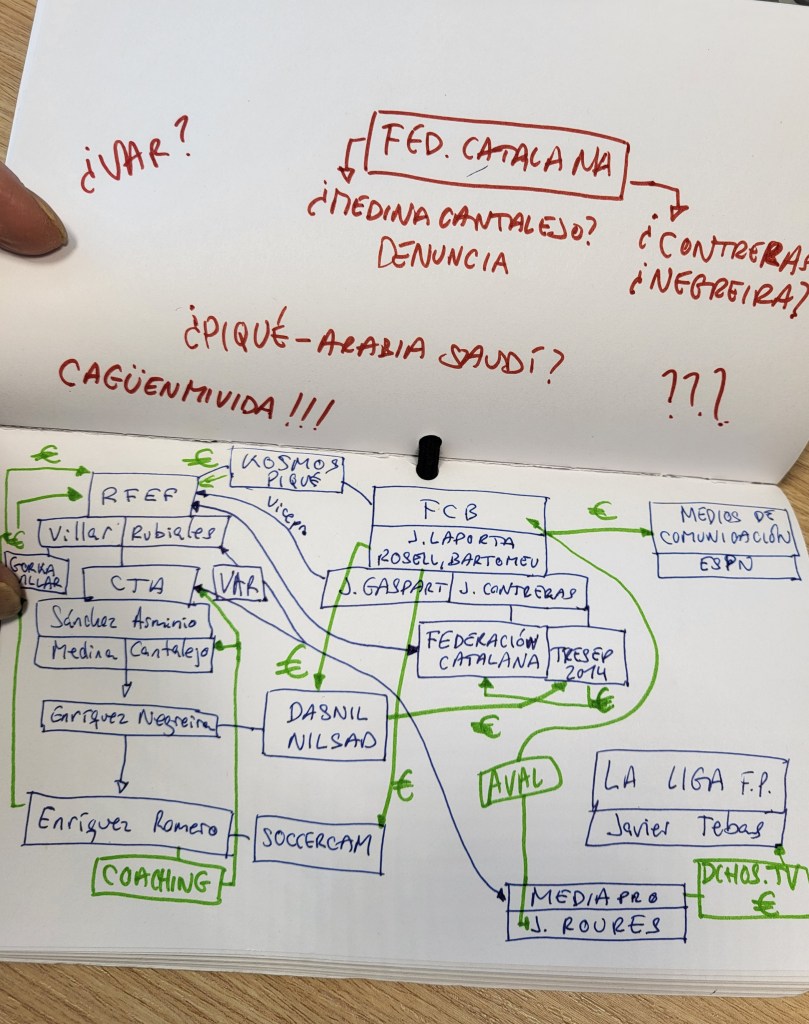 ¿VAR?
FED. CATALANA
¿MEDINA CANTALEJO?
DENUNCIA
¿CONTRERAS
¿NEGREIRA?
¿PIQUÉ - ARABIA SAUDÍ?
CAGÜENMIVIDA!!!
???
€
€
KOSMOS
PIQUÉ
RFEF
Villar Rubiales
Vicepre
FCB
J. LAPORTA
ROSELL, BARTOMEU
€
MEDIOS DE
COMUNICACIÓN
ESPN
€
GORKA
VILLAR
CTA
VAR
J. GASPART J. CONTRERAS
Sánchez Asminio
Medina Cantalejo
FEDERACIÓN
CATALANA
TRESEP
2014
€
€
Enríquez Negreira
DASNIL
NILSAD
€
€
AVAL
LA LIGA F.P.
Javier Tebas
Enríquez Romero
SOCCERCAM
COACHING
MEDIAPRO
J. ROURES
DCHOS. TV
€